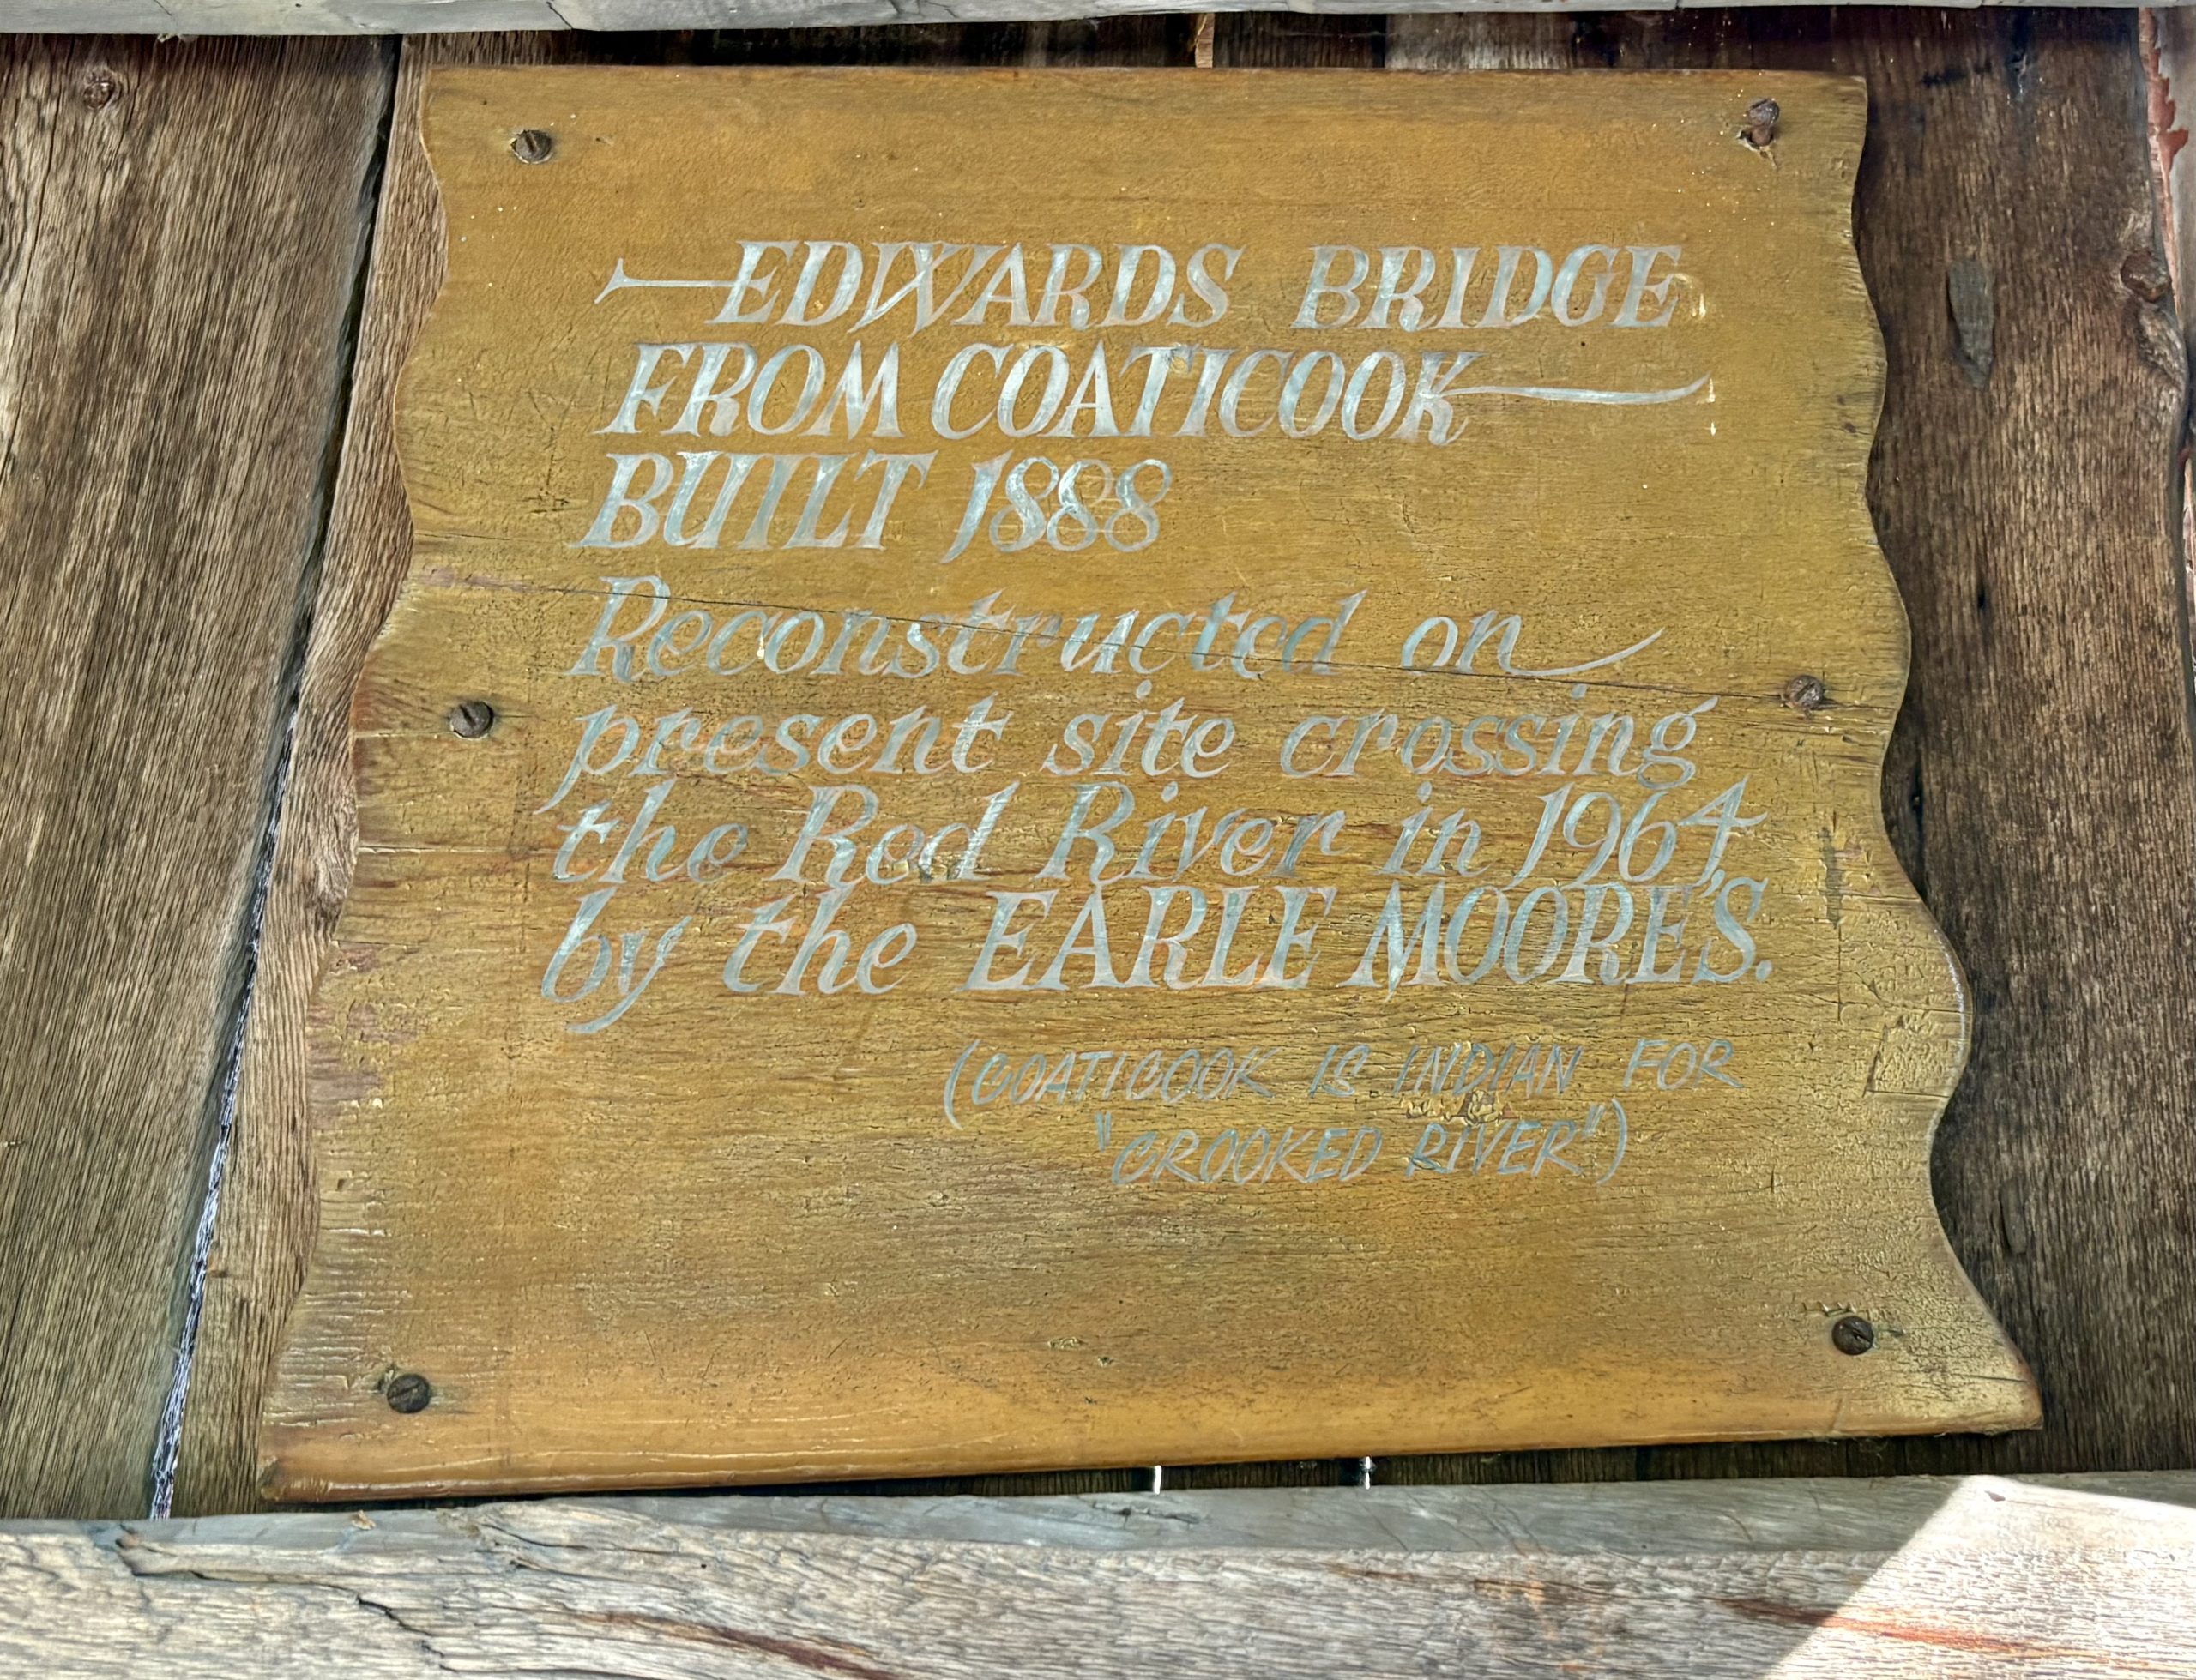 EDWARDS BRIDGE
FROM COATICOOK
BUILT 1888
Reconstructed on
present site crossing
the Red River in 1964,
by the EARLE MOORE'S.
(COATICOOK IS INDIAN FOR
"CROOKED RIVER")